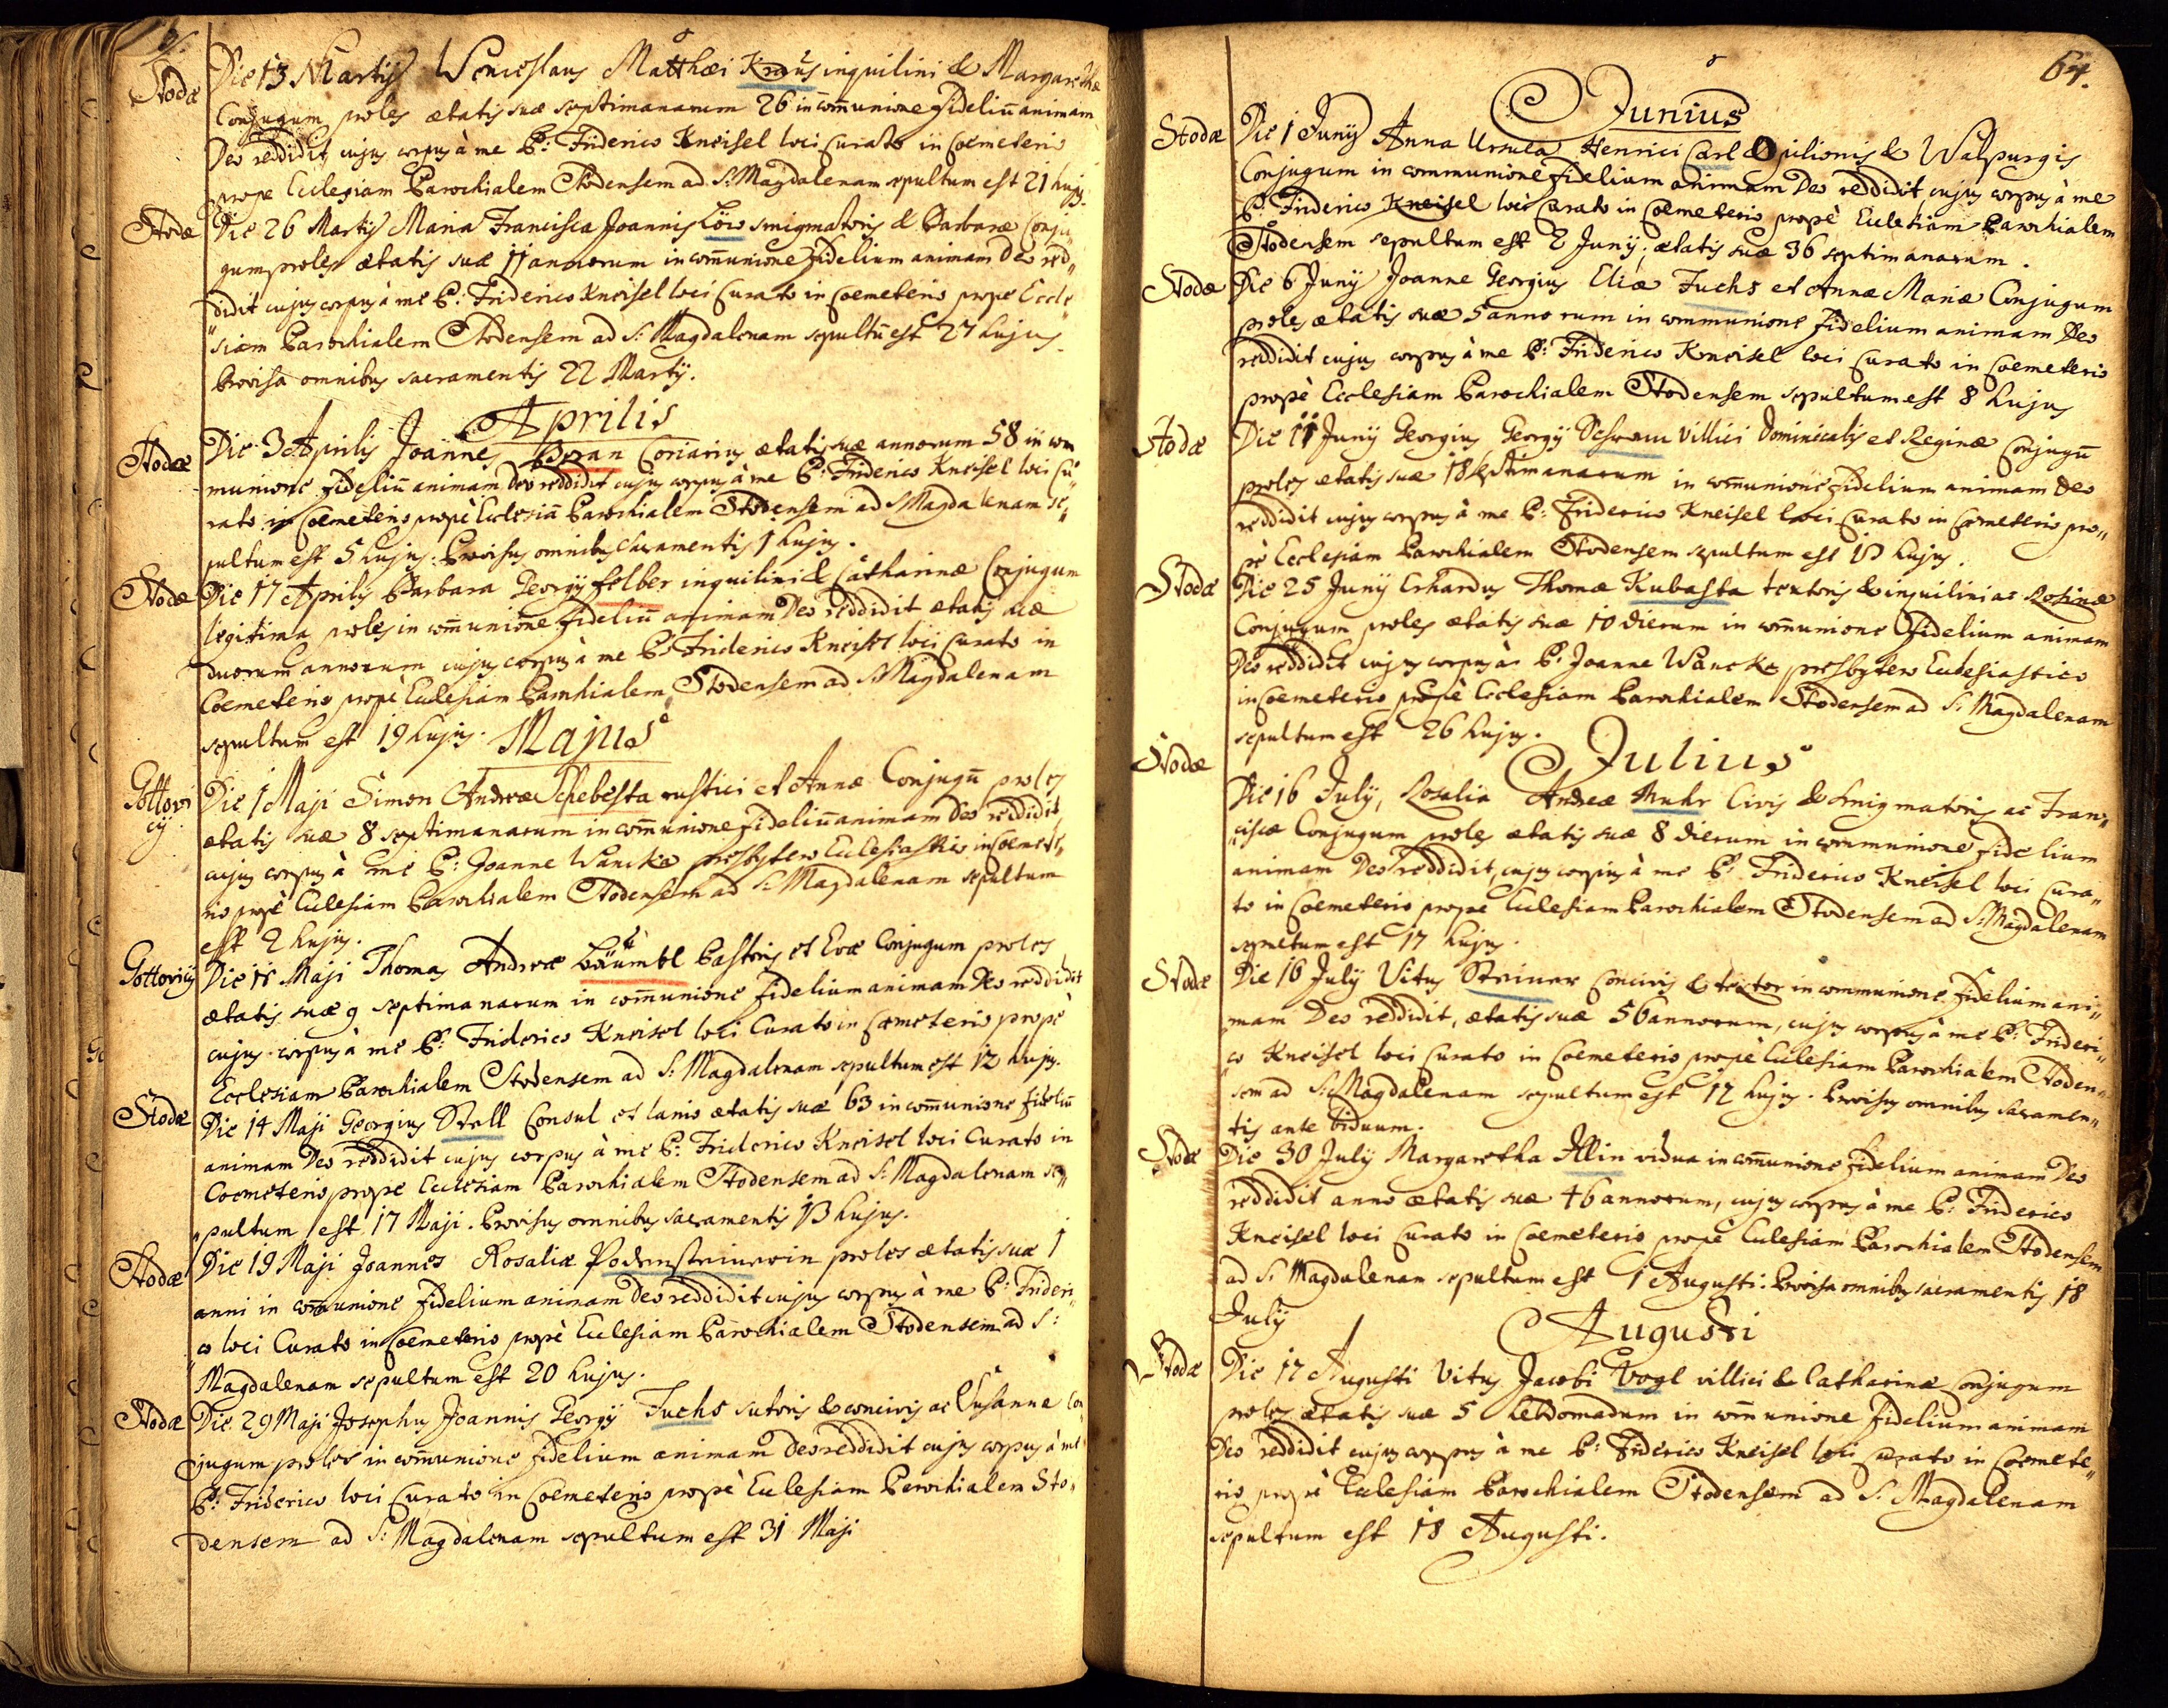 Stodæ
Die 13 Martij Wenceslaus Matthæi Kraus inquilini & Margarethæ
Conjugum proles ætatis suæ septimanarum 26 in com̄unione fideliū animam
Deo reddidit cujus corpus à me P: Friderico Kneisel loci Curato in Coemeterio
prope Ecclesiam Parochialem Stodensem ad S: Magdalenam sepultum est 21 hujus.
Stodæ
Die 26 Martij Maria Francisca Joannis Löw smigmatoris & Barbaræ Conju„
gum proles ætatis suæ 11 annorum in com̄unione fidelium animam Deo red„
didit cujus corpus à me P: Friderico Kneisel loci Curato in Coemeterio prope Eccle„
„siam Parochialem Stodensem ad S: Magdalenam sepultū est 27 hujus.
Provisa omnibus sacramentis 22 Martij.
Aprilis
Stodæ
Die 3 Aprilis Joannes Beran Coriarius ætatis suæ annorum 58 in com
munione fideliū animam Deo reddidit cujus corpus à me P: Friderico Kneisel loci Cu„
rato in Coemeterio propè Ecclesiā Parochialem Stodensem ad S Magdalenam se„
pultum est 5 hujus. Provisus omnibus sacramentis 1 hujus.
Stodæ
Die 17 Aprilis Barbara Georgij Felber inquilini & Catharinæ Conjugum
legitima proles in com̄unione fideliū animam Deo reddidit ætatis suæ
duorum annorum cujus corpus à me P: Friderico Kneisel loci Curato in
Coemeterio propè Ecclesiam Parochialem Stodensem ad S: Magdalenam
sepultum est 19 hujus.
Majus
Gottovi
cij
Die 1 Maji Simon Andreæ Schebesta rustici et Annæ Conjugū proles
ætatis suæ 8 septimanarum in com̄unione fideliū animam Deo reddidit
cujus corpus à me P: Joanne Wancka presbytero Ecclesiastico in Coemete„
rio propè Ecclesiam Parochialem Stodensem ad S: Magdalenam sepultum
est 2 hujus.
Gottovicij
Die 11 Maji Thomas Andreæ Bäumtl Pastoris et Evæ Conjugum proles
ætatis suæ 9 septimanarum in com̄unione fidelium animam Deo reddidit
cujus corpus à me P: Friderico Kneisel loci Curato in Coemeterio propè
Ecclesiam Parochialem Stodensem ad S: Magdalenam sepultum est 12 hujus.
Stodæ
Die 14 Maji Georgius Stell Consul et lanio ætatis suæ 63 in com̄unione fideliū
animam Deo reddidit cujus corpus à me P: Friderico Kneisel loci Curato in
Coemeterio prope Ecclesiam Parochialem Stodensem ad S: Magdalenam se„
„pultum est 17 Maji. Provisus omnibus sacramentis 13 hujus.
Stodæ
Die 19 Maji Joannes Rosaliæ Podensteinerin proles ætatis suæ 1
anni in com̄unione fidelium animam Deo reddidit cujus corpus à me P: Frideri„
co loci Curato in Coemeterio propè Ecclesiam Parochialem Stodensem ad S:
Magdalenam sepultum est 20 hujus.
Stodæ
Die 29 Maji Josephus Joannis Georgij Fuchs sutoris & concivis ac Susannæ Con„
jugum proles in com̄unione fidelium animam Deo reddidit cujus corpus à me
P: Friderico loci Curato in Coemeterio propè Ecclesiam Parochialem Sto„
densem ad S: Magdalenam sepultum est 31 Maji
64.
Junius
Stodæ
Die 1 Junij Anna Ursula Henrici Carl Opilionis & Walpurgis
Conjugum in communione fidelium animam Deo reddidit, cujus corpus à me
P: Friderico Kneisel loci Curato in Coemeterio propè Ecclesiam Parochialem
Stodensem sepultum est 2 Junij; ætatis suæ 36 septimanarum.
Stodæ
Die 6 Junij Joanne Georgius Eliæ Fuchs et Annæ Mariæ Conjugum
proles ætatis suæ 5 annorum in communione fidelium animam Deo
reddidit cujus corpus à me P: Friderico Kneisel loci Curato in Coemeterio
propè Ecclesiam Parochialem Stodensem sepultum est 8 hujus
Stodæ
Die 11 Junij Georgius Georgij Schram Villici Dominicalis et Reginæ Conjugū
proles ætatis suæ 18 septimanarum in com̄unione fidelium animam Deo
reddidit cujus corpus à me P: Friderico Kneisel loci Curato in Coemeterio pro„
pè Ecclesiam Parochialem Stodensem sepultum est hujus.
Stodæ
Die 25 Junij Erhardus Thomæ Kubasta textoris & inquilini ac Rosinæ
Conjugum proles ætatis suæ 10 dierum in com̄unione fidelium animam
Deo reddidit cujus corpus à P: Joanne Wancka presbytero Ecclesiastico
in Coemeterio propè Ecclesiam Parochialem Stodensem ad S: Magdalenam
sepultum est 26 hujus.
Julius
Stodæ
Die 16 July, Rosalia Andreæ Muhr Civis & smigmatoris ac Fran„
„ciscæ Conjugum proles ætatis suæ 8 dierum in communione fidelium
animam Deo reddidit, cujus corpus à me P: Friderico Kneisel loci Cura„
to in Coemeterio propè Ecclesiam Parochialem Stodensem ad S: Magdalenam
sepultum est 17 hujus.
Stodæ
Die 16 July Vitus Steiner Concivis & textor in communione fidelium ani„
mam Deo reddidit, ætatis suæ 56 annorum, cujus corpus à me P: Frideri„
co Kneisel loci Curato in Coemeterio propè Ecclesiam Parochialem Stoden„
sem ad S: Magdalenam sepultum est 17 hujus. Provisus omnibus sacramen„
tis ante biduum.
Stodæ
Die 30 July Margaretha Illin vidua in com̄unione fidelium animam Deo
reddidit anno ætatis suæ 46 annorum, cujus corpus à me P: Friderico
Kneisel loci Curato in Coemeterio propè Ecclesiam Parochialem Stodensem
ad S: Magdalenam sepultum est 1 Augusti: Provisa omnibus sacramentis 18
July
Augusti
Stodæ
Die 17 Augusti Vitus Jacobi Vogl villici & Catharinæ Conjugum
proles ætatis suæ 5 hebdomadum in com̄unione fidelium animam
Deo reddidit cujus corpus à me P: Friderico Kneisel loci Curato in Coemete„
rio propè Ecclesiam Parochialem Stodensem ad S: Magdalenam
sepultum est 18 Augusti.